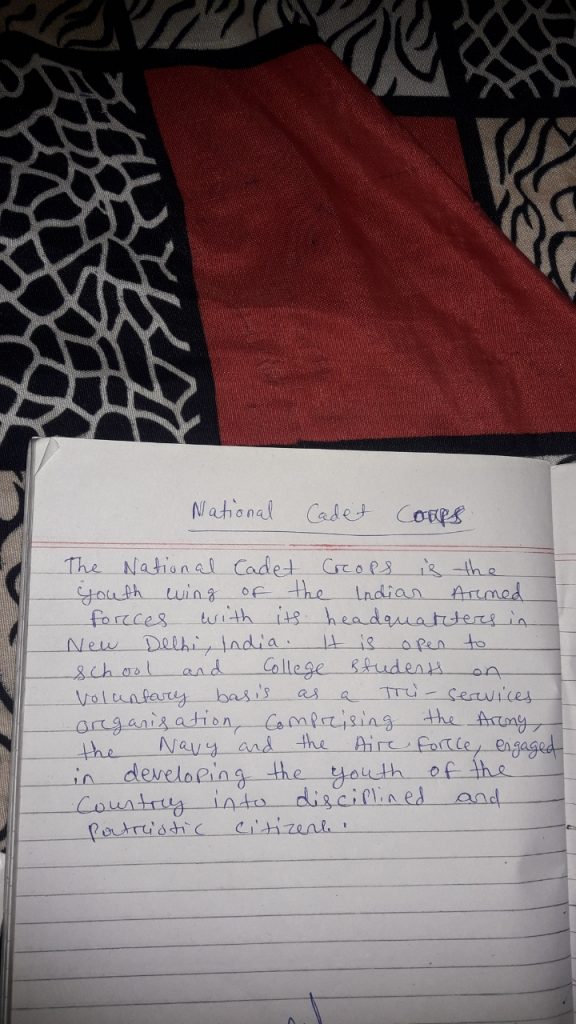 National Cadet Corps
The National Cadet Crops is the
youth wing of the Indian Armed
forces with its headquarters in
New Delhi, India. It is open to
school and College students on
Voluntary basis as a Tri-services
organisation, Comprising the Army,
the Navy and the Air force, engaged
in developing the youth of the
Country into disciplined and
Patriotic citizens.